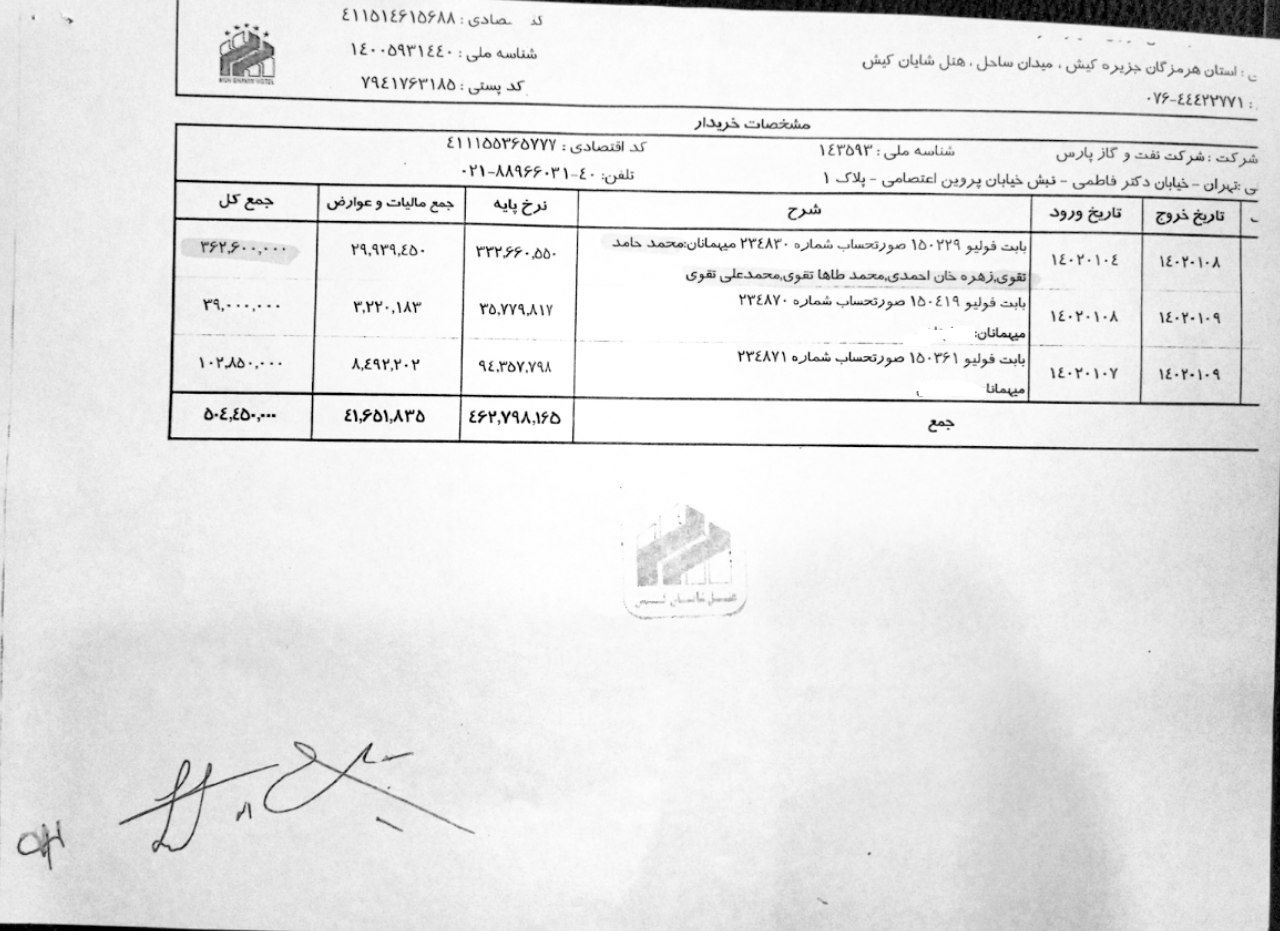 صادی : ۴۱۱۵۱۴۶۱۵۶۸۸
شناسه ملی : ۱۴۰۰۵۹۳۱۴۴۰
: استان هرمزگان جزیره کیش ، میدان ساحل ، هتل شایان کیش
کد پستی : ۷۹۴۱۷۶۳۱۸۵
: ۰۷۶-۴۴۴۲۲۷۷۱
مشخصات خریدار
شرکت : شرکت نفت و گاز پارس شناسه ملی : ۱۴۳۵۹۳ کد اقتصادی : ۴۱۱۱۵۵۳۶۵۷۷۷
تهران - خیابان دکتر فاطمی - نبش خیابان پروین اعتصامی - پلاک ۱ تلفن: ۰۲۱-۸۸۹۶۶۰۳۱-۴۰
تاریخ خروج تاریخ ورود شرح نرخ پایه جمع مالیات و عوارض جمع کل
۱۴۰۲۰۱۰۸ ۱۴۰۲۰۱۰۴ بابت فولیو ۱۵۰۲۲۹ صورتحساب شماره ۲۳۴۸۳۰ میهمانان:محمد حامد ۳۳۲,۶۶۰,۵۵۰ ۲۹,۹۳۹,۴۵۰ ۳۶۲,۶۰۰,۰۰۰
تقوی,زهره خان احمدی,محمد طاها تقوی,محمدعلی تقوی
۱۴۰۲۰۱۰۹ ۱۴۰۲۰۱۰۸ بابت فولیو ۱۵۰۴۱۹ صورتحساب شماره ۲۳۴۸۷۰ ۳۵,۷۷۹,۸۱۷ ۳,۲۲۰,۱۸۳ ۳۹,۰۰۰,۰۰۰
میهمانان:
۱۴۰۲۰۱۰۹ ۱۴۰۲۰۱۰۷ بابت فولیو ۱۵۰۳۶۱ صورتحساب شماره ۲۳۴۸۷۱ ۹۴,۳۵۷,۷۹۸ ۸,۴۹۲,۲۰۲ ۱۰۲,۸۵۰,۰۰۰
میهمانا
جمع ۴۶۲,۷۹۸,۱۶۵ ۴۱,۶۵۱,۸۳۵ ۵۰۴,۴۵۰,۰۰۰
هتل شایان کیش